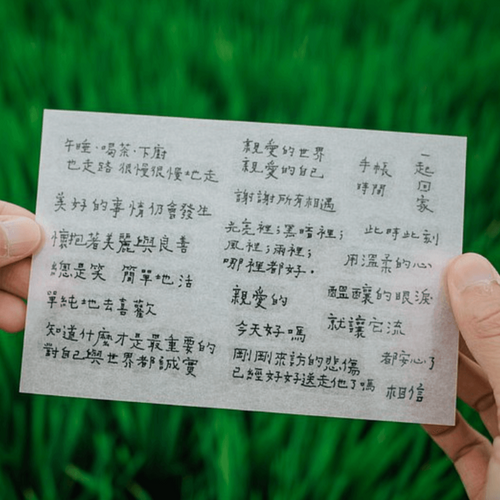 午睡·喝茶·下廚
也走路 很慢很慢地走
美好的事情仍會發生
懷抱著美麗與良善
總是笑 簡單地活
單純地去喜歡
知道什麼才是最重要的
對自己與世界都誠實
親愛的世界
親愛的自己
謝謝所有相遇
光亮裡；黑暗裡；
風裡；雨裡；
哪裡都好．
親愛的
今天好嗎
剛剛來訪的悲傷
已經好好送走他了嗎
手帳
時間
一起回家
此時此刻
用溫柔的心
醞釀的眼淚
就讓它流
都安心了
相信